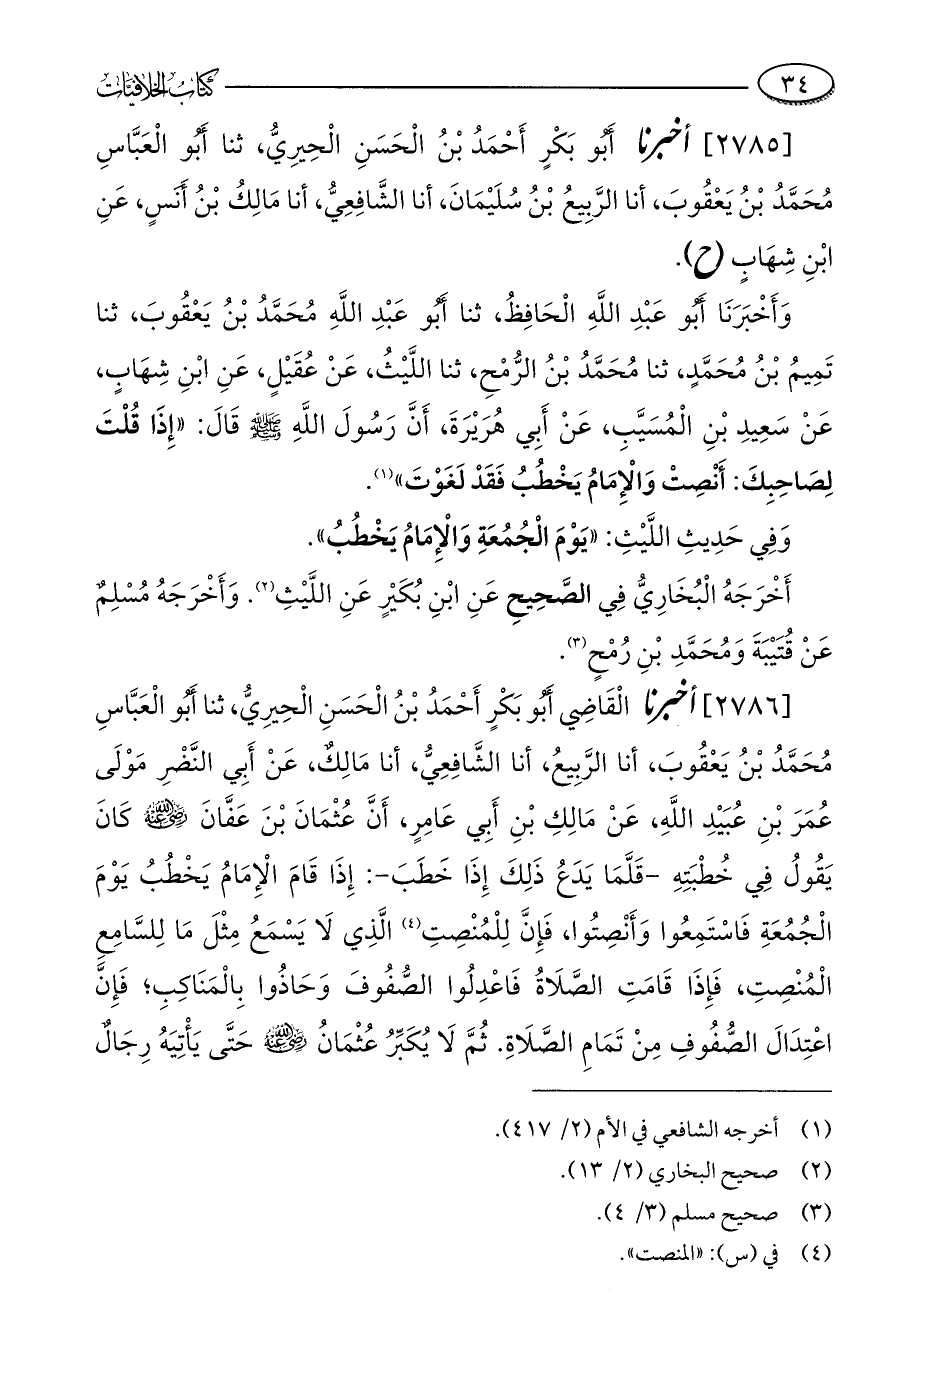 ٣٤ كتاب الخلافيات
[٢٧٨٥] أخبرنا أَبُو بَكْرٍ أَحْمَدُ بْنُ الْحَسَنِ الْحِيرِيُّ، ثنا أَبُو الْعَبَّاسِ
مُحَمَّدُ بْنُ يَعْقُوبَ، أنا الرَّبِيعُ بْنُ سُلَيْمَانَ، أنا الشَّافِعِيُّ، أنا مَالِكُ بْنُ أَنَسٍ، عَنِ
ابْنِ شِهَابٍ (ح).
وَأَخْبَرَنَا أَبُو عَبْدِ اللَّهِ الْحَافِظُ، ثنا أَبُو عَبْدِ اللَّهِ مُحَمَّدُ بْنُ يَعْقُوبَ، ثنا
تَمِيمُ بْنُ مُحَمَّدٍ، ثنا مُحَمَّدُ بْنُ الرُّمْحِ، ثنا اللَّيْثُ، عَنْ عُقَيْلٍ، عَنِ ابْنِ شِهَابٍ،
عَنْ سَعِيدِ بْنِ الْمُسَيَّبِ، عَنْ أَبِي هُرَيْرَةَ، أَنَّ رَسُولَ اللَّهِ ﷺ قَالَ: «إِذَا قُلْتَ
لِصَاحِبِكَ: أَنْصِتْ وَالْإِمَامُ يَخْطُبُ فَقَدْ لَغَوْتَ»(١).
وَفِي حَدِيثِ اللَّيْثِ: «يَوْمَ الْجُمُعَةِ وَالْإِمَامُ يَخْطُبُ».
أَخْرَجَهُ الْبُخَارِيُّ فِي الصَّحِيحِ عَنِ ابْنِ بُكَيْرٍ عَنِ اللَّيْثِ(٢). وَأَخْرَجَهُ مُسْلِمٌ
عَنْ قُتَيْبَةَ وَمُحَمَّدِ بْنِ رُمْحٍ(٣).
[٢٧٨٦] أخبرنا الْقَاضِي أَبُو بَكْرٍ أَحْمَدُ بْنُ الْحَسَنِ الْحِيرِيُّ، ثنا أَبُو الْعَبَّاسِ
مُحَمَّدُ بْنُ يَعْقُوبَ، أنا الرَّبِيعُ، أنا الشَّافِعِيُّ، أنا مَالِكٌ، عَنْ أَبِي النَّضْرِ مَوْلَى
عُمَرَ بْنِ عُبَيْدِ اللَّهِ، عَنْ مَالِكِ بْنِ أَبِي عَامِرٍ، أَنَّ عُثْمَانَ بْنَ عَفَّانَ رضي الله عنه كَانَ
يَقُولُ فِي خُطْبَتِهِ -قَلَّمَا يَدَعُ ذَلِكَ إِذَا خَطَبَ-: إِذَا قَامَ الْإِمَامُ يَخْطُبُ يَوْمَ
الْجُمُعَةِ فَاسْتَمِعُوا وَأَنْصِتُوا، فَإِنَّ لِلْمُنْصِتِ(٤) الَّذِي لَا يَسْمَعُ مِثْلَ مَا لِلسَّامِعِ
الْمُنْصِتِ، فَإِذَا قَامَتِ الصَّلَاةُ فَاعْدِلُوا الصُّفُوفَ وَحَاذُوا بِالْمَنَاكِبِ؛ فَإِنَّ
اعْتِدَالَ الصُّفُوفِ مِنْ تَمَامِ الصَّلَاةِ. ثُمَّ لَا يُكَبِّرُ عُثْمَانُ رضي الله عنه حَتَّى يَأْتِيَهُ رِجَالٌ
(١) أخرجه الشافعي في الأم (٢/ ٤١٧).
(٢) صحيح البخاري (٢/ ١٣).
(٣) صحيح مسلم (٣/ ٤).
(٤) في (س): «المنصت».